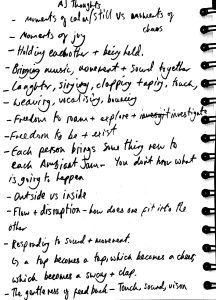 AJ Thoughts
- moments of color/still vs moments of
chaos
- Moments of joy
- Holding eachother + being held.
- Bringing music, movement + sound together
- Laughter, singing, clapping taping, touch,
- weaving, vocalising, bouncing
- Freedom to roam + explore + investigate
- Freedom to be + exist
- Each person brings some thing new to
each Ambient Jam - You don't know what
is going to happen
- Outside vs inside
- Flow + disruption - how does one fit into the
other
- Responding to sound + movement.
a tap becomes a tap, which becomes a
which becomes a sway + clap.
- The gentleness of feedback - Touch, sound, vision